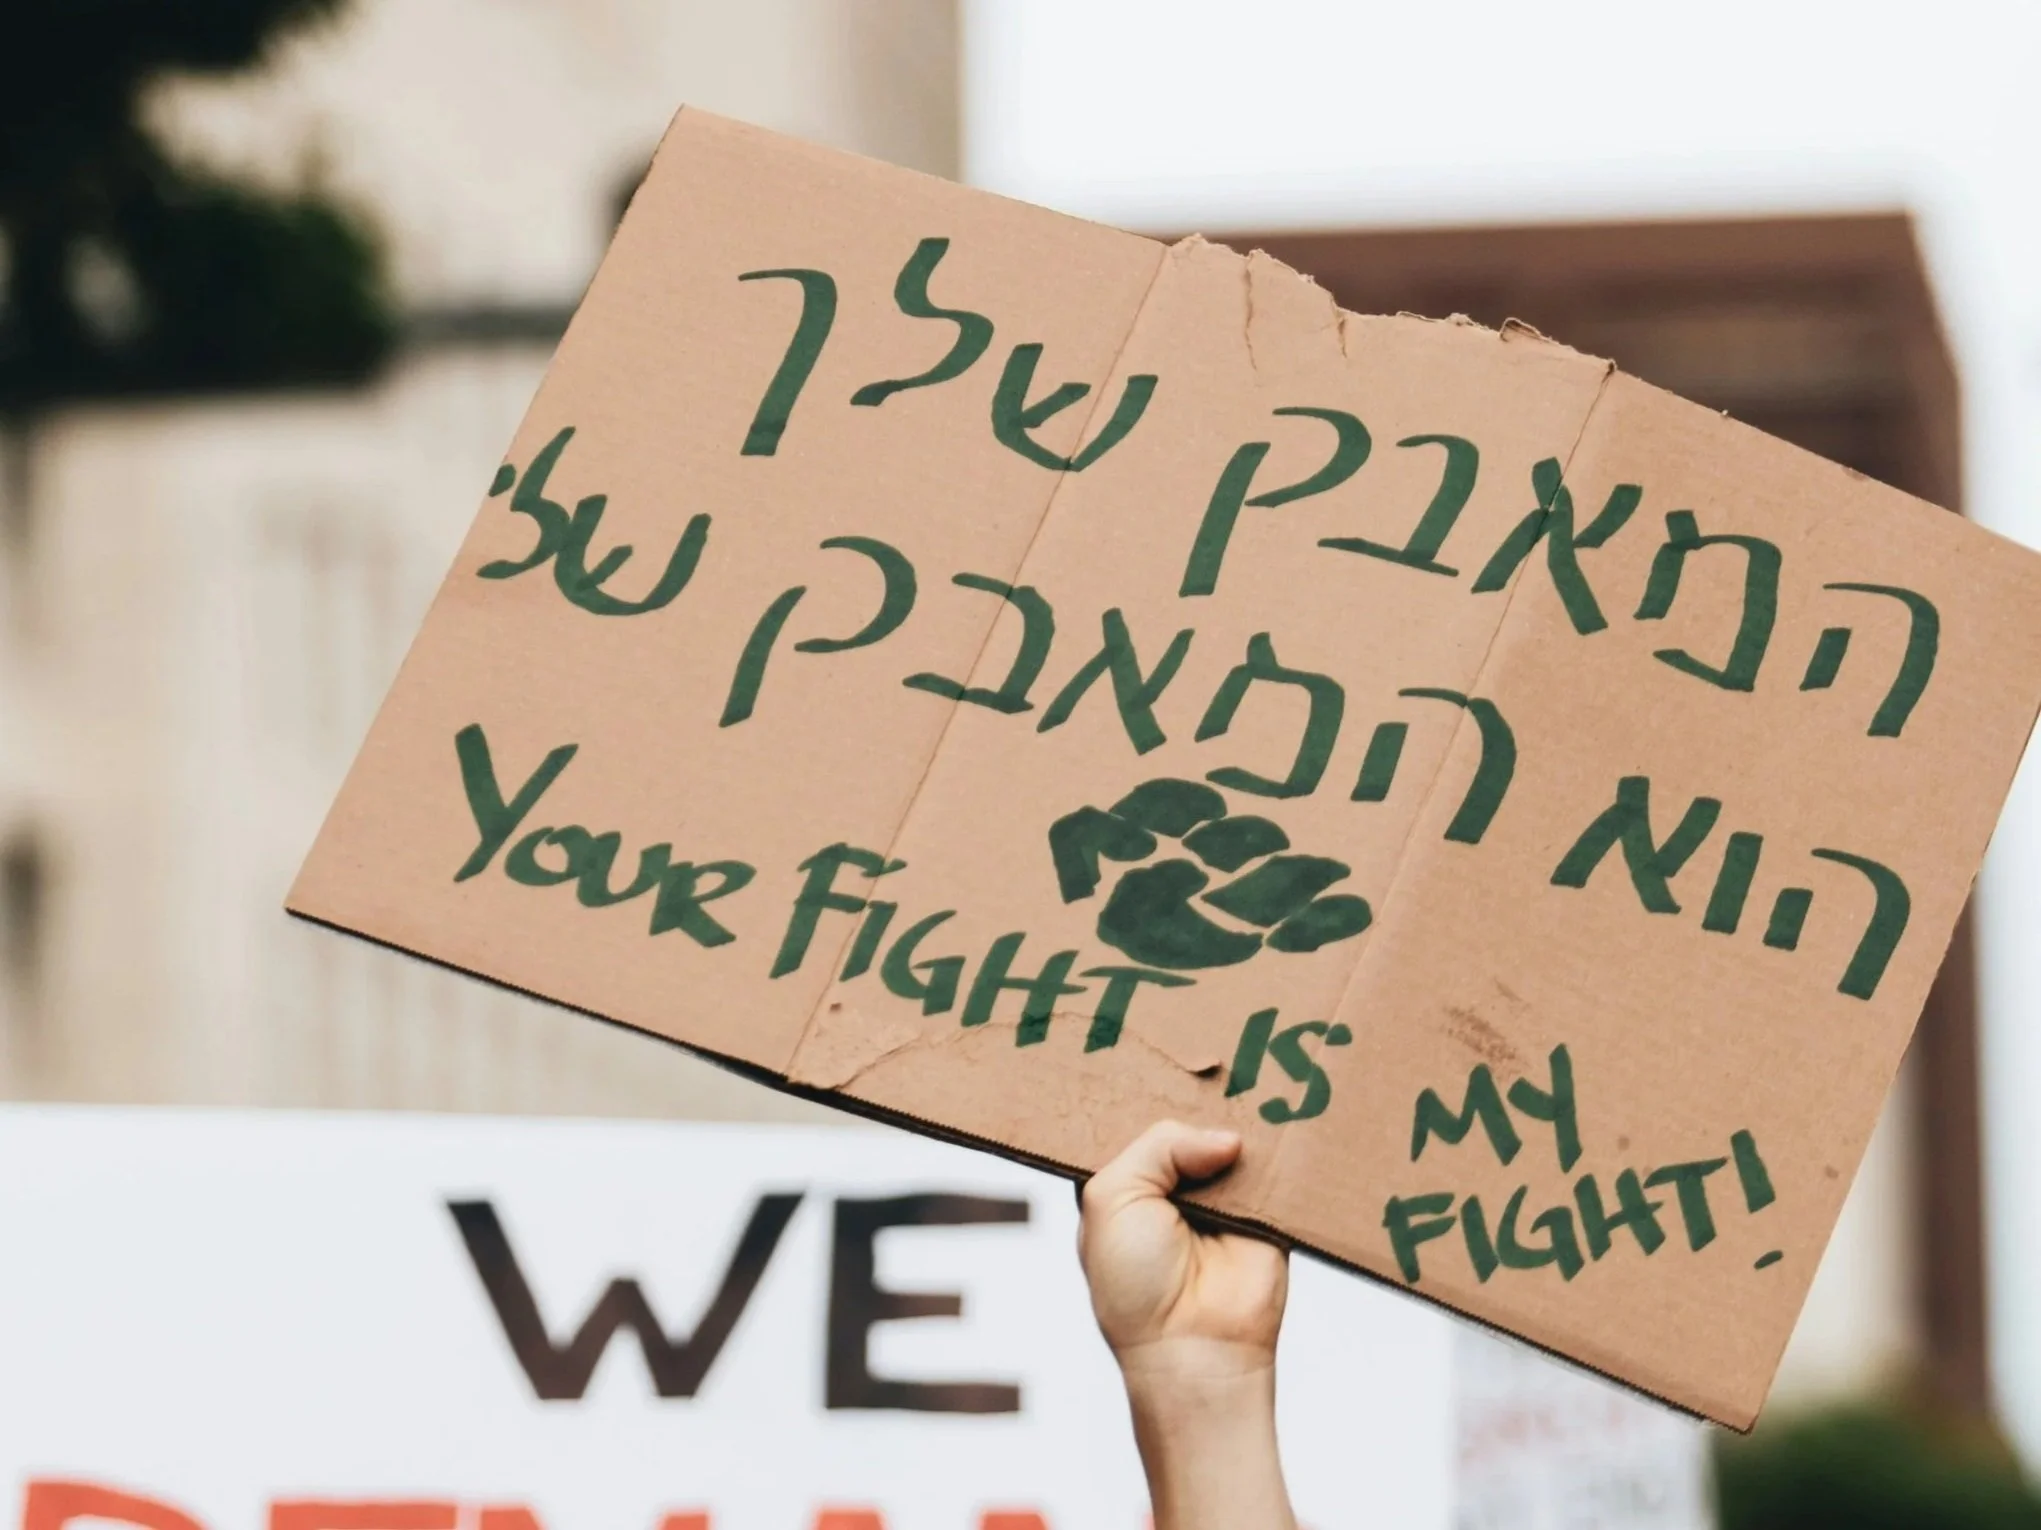 המאבק שלך
הוא המאבק שלי
YOUR FIGHT IS MY
FIGHT!
WE